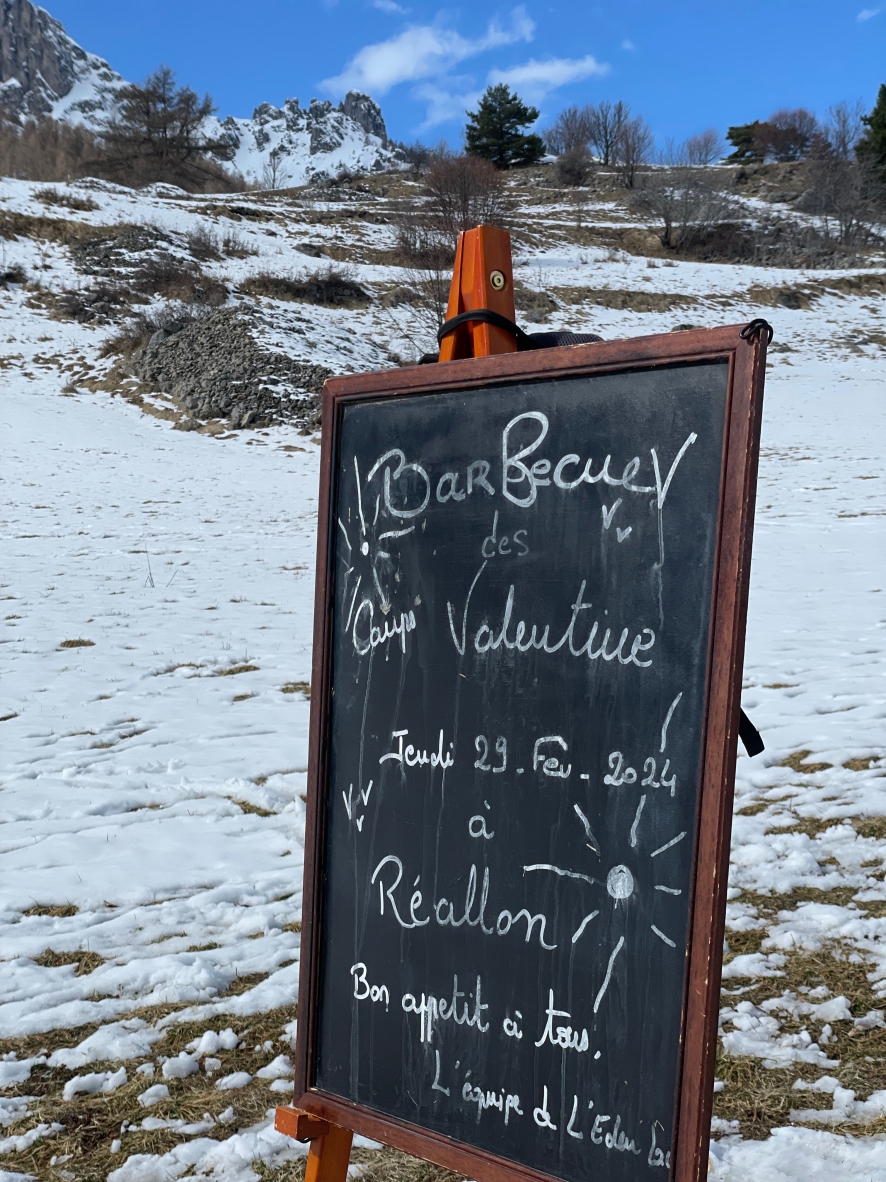 BarBecue
des
Camps Valentine
Jeudi 29. Fev. 2024
à
Réallon
Bon appetit à tous.
L'équipe de L'Eden